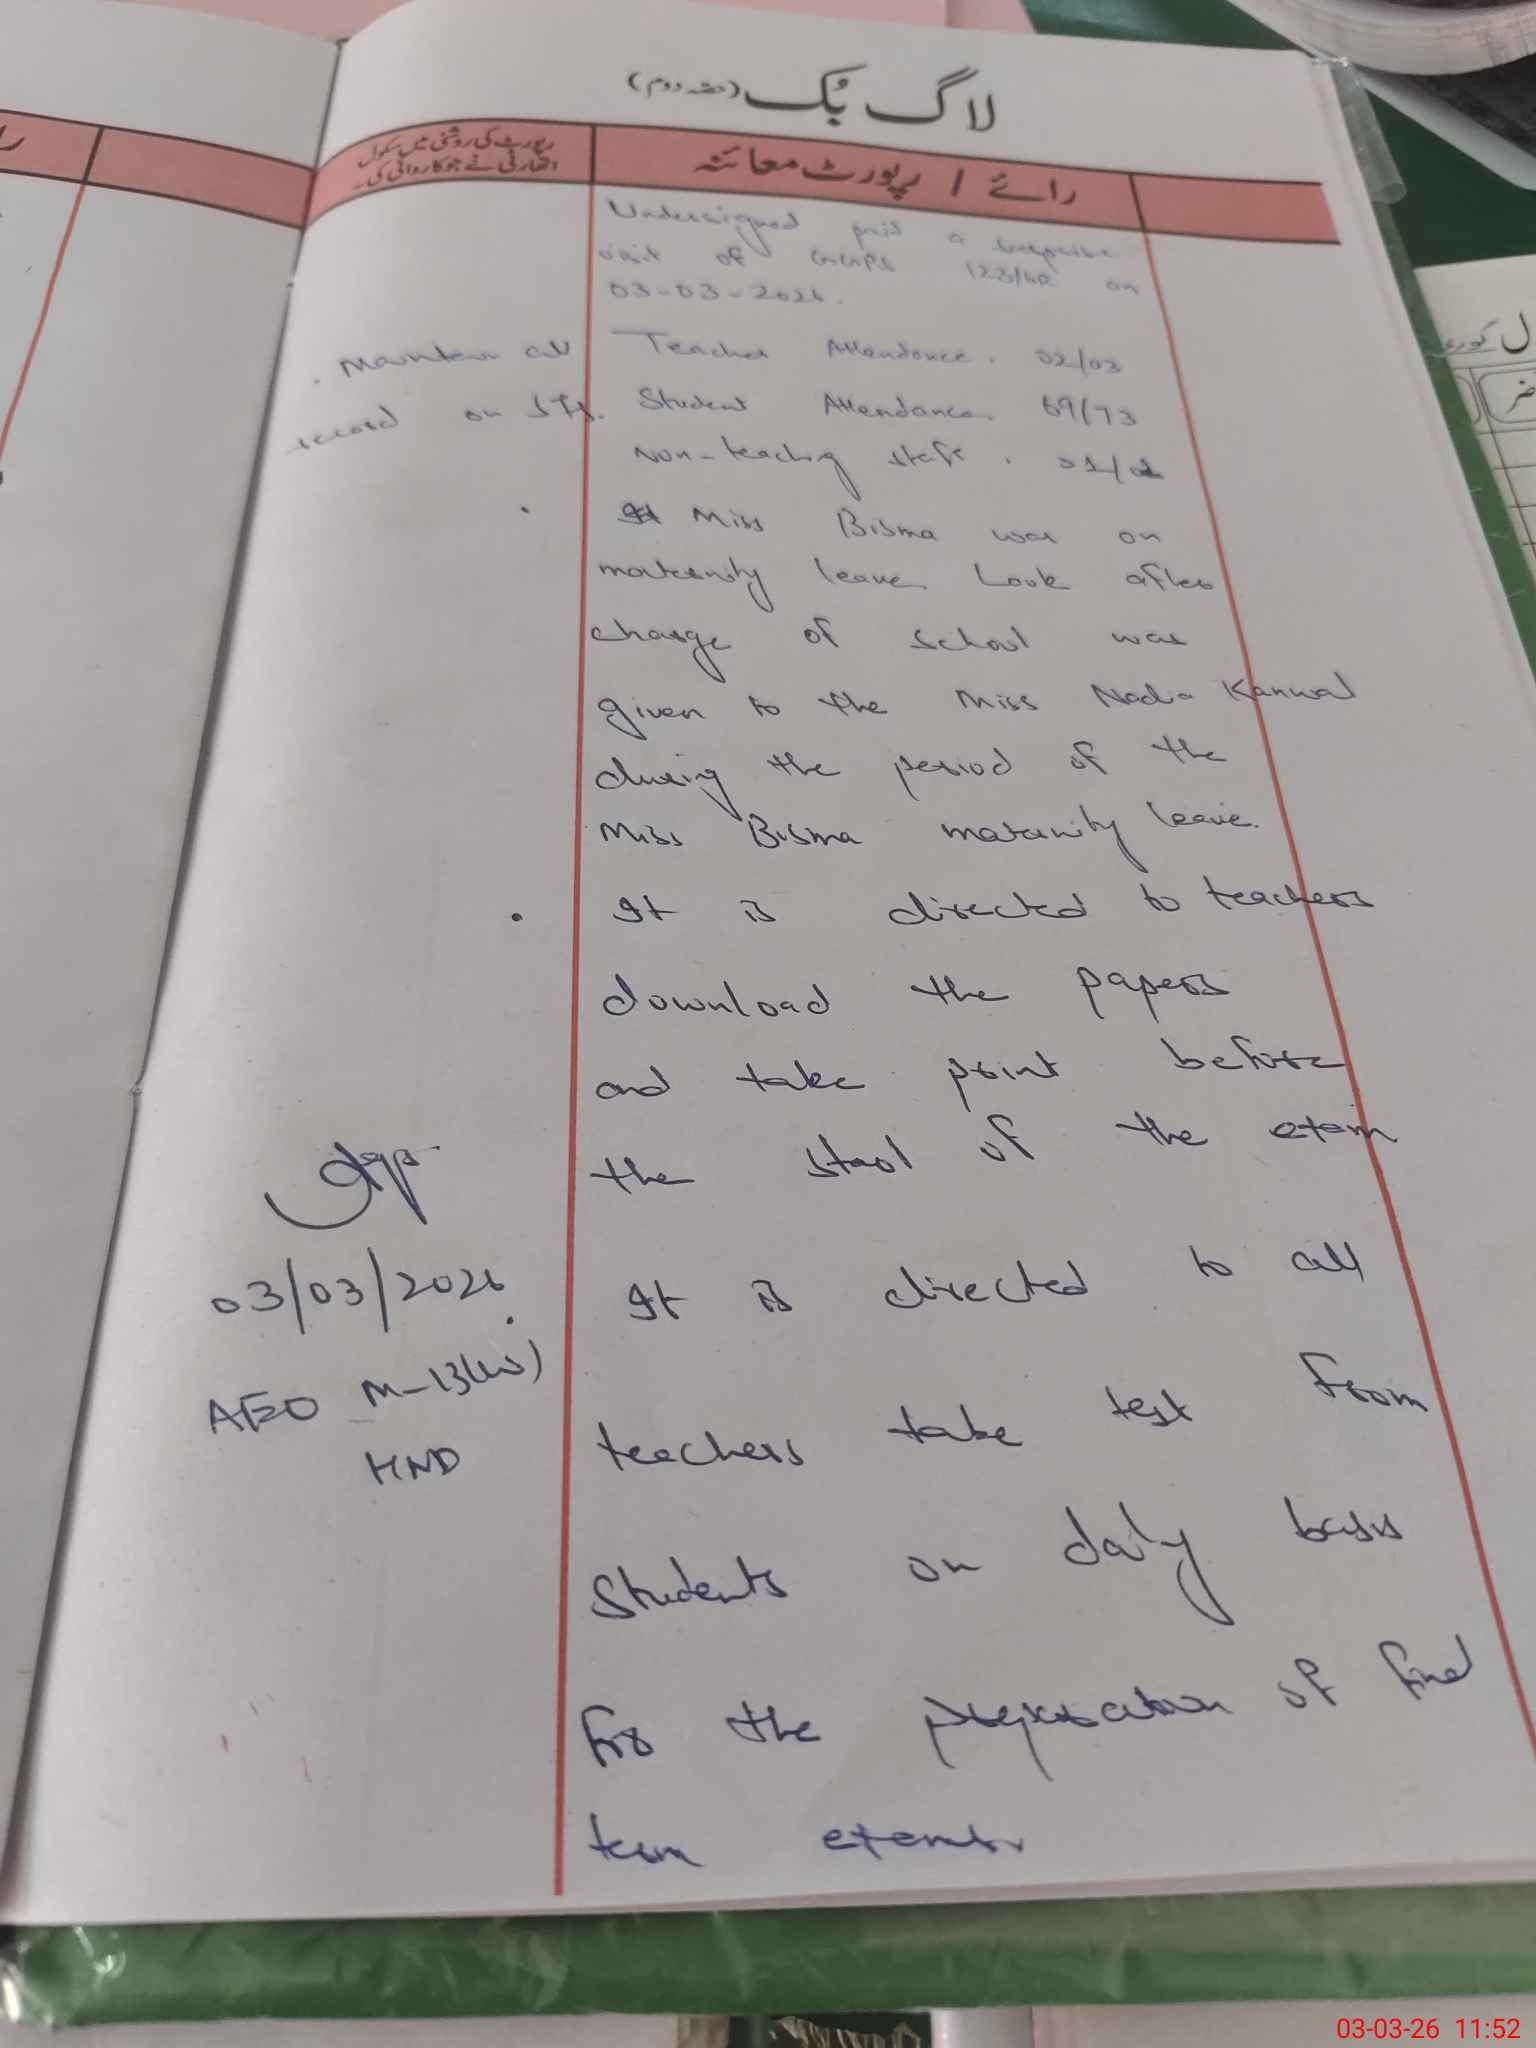 لاگ بُک (حصہ دوم)
رائے / رپورٹ معائنہ
رپورٹ کی روشنی میں سکول
اتھارٹی نے جو کاروائی کی۔
Undersigned paid a surprise
visit of GGPS 123/6R on
03-03-2026.
Teacher Attendance. 02/03
Student Attendance. 69/73
Non-teaching staff. 01/01
Miss Bisma was on
maternity leave. Look after
charge of school was
given to the Miss Nadia Kanwal
during the period of the
Miss Bisma maternity leave.
It is directed to teachers
download the papers
and take print before
the start of the exam
It is directed to all
teachers take test from
Students on daily basis
for the preparation of final
term exams.
. Maintain all
record on SIS.
03/03/2026
AEO M-13(W)
HND
ل کوری
ضر
03-03-26 11:52